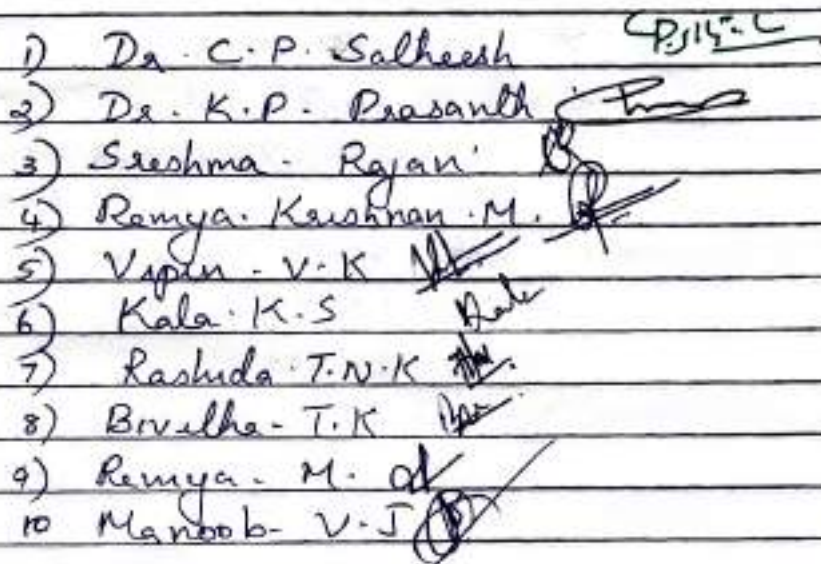 1) Dr. C. P. Satheesh
2) Dr. K. P. Prasanth
3) Sreshma. Rajan
4) Remya. Krishnan. M.
5) Vipin. V. K
6) Kala. K. S
7) Rashida. T. N. K
8) Bivitha- T. K
9) Remya. M.
10 Manoob- V. J